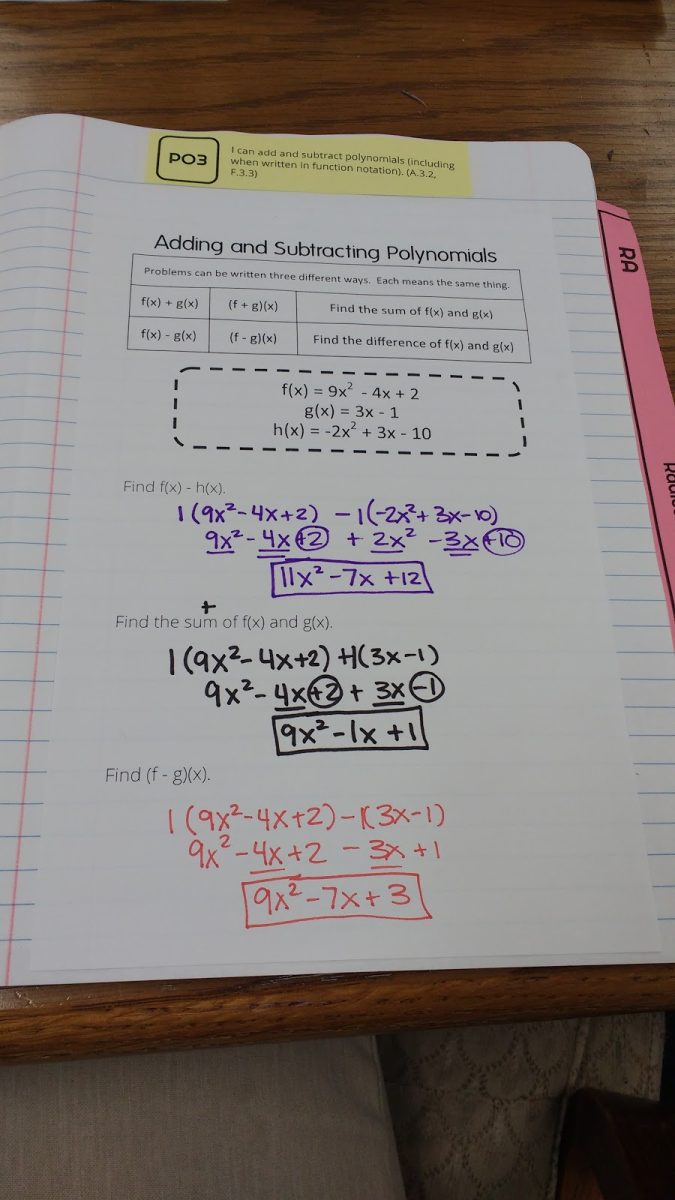 PO3
I can add and subtract polynomials (including
when written in function notation). (A.3.2,
F.3.3)
RA
Adding and Subtracting Polynomials
Problems can be written three different ways. Each means the same thing.
f(x) + g(x) (f + g)(x) Find the sum of f(x) and g(x)
f(x) - g(x) (f - g)(x) Find the difference of f(x) and g(x)
f(x) = 9x² - 4x + 2
g(x) = 3x - 1
h(x) = -2x² + 3x - 10
Find f(x) - h(x).
1(9x²-4x+2) -1(-2x²+3x-10)
9x²-4x+2 +2x²-3x+10
11x²-7x+12
+
Find the sum of f(x) and g(x).
1(9x²-4x+2)+1(3x-1)
9x²-4x+2+3x-1
9x²-1x+1
Find (f - g)(x).
1(9x²-4x+2)-1(3x-1)
9x²-4x+2-3x+1
9x²-7x+3